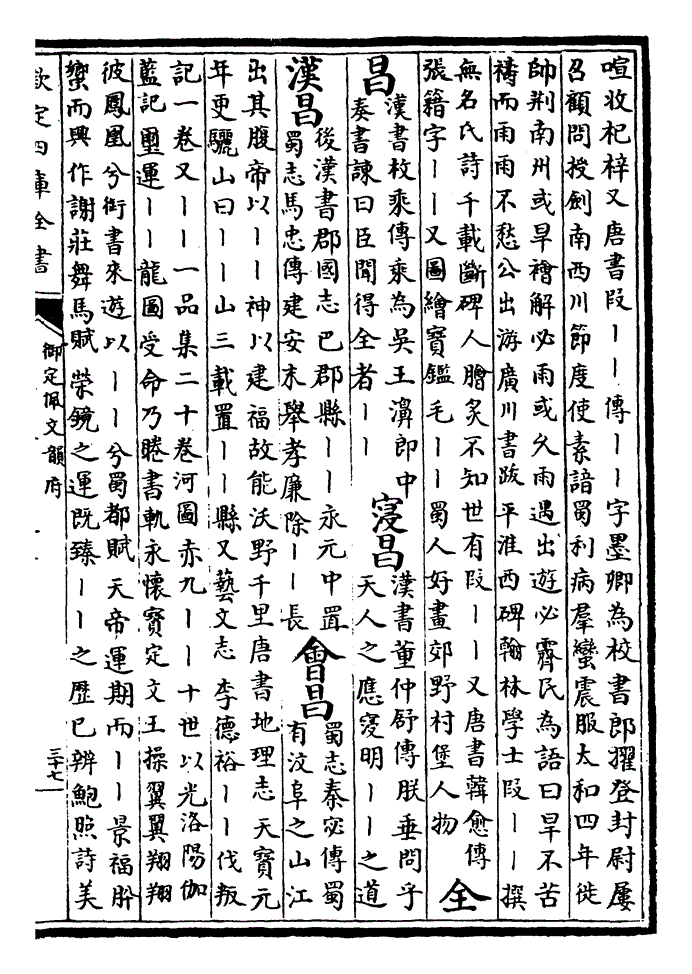 喧收杞梓又唐書段丨丨傳丨丨字墨卿為校書郎擢登封尉屢
召顧問授劍南西川節度使素諳蜀利病羣蠻震服太和四年徙
帥荆南州或旱禬解必雨或久雨遇出遊必霽民為語曰旱不苦
禱而雨雨不愁公出游廣川書跋平淮西碑翰林學士段丨丨撰
無名氏詩千載斷碑人膾炙不知世有段丨丨又唐書韓愈傳
張籍字丨丨又圖繪寶鑑毛丨丨蜀人好畫郊野村堡人物
全
昌
漢書枚乘傳乘為吳王濞郎中
奏書諫曰臣聞得全者丨丨
寖昌
漢書董仲舒傳朕垂問乎
天人之應寖明丨丨之道
漢昌
後漢書郡國志巴郡縣丨丨永元中置
蜀志馬忠傳建安末舉孝廉除丨丨長
會昌
蜀志秦宓傳蜀
有汶阜之山江
出其腹帝以丨丨神以建福故能沃野千里唐書地理志天寶元
年更驪山曰丨丨山三載置丨丨縣又藝文志李德裕丨丨伐叛
記一卷又丨丨一品集二十卷河圖赤九丨丨十世以光洛陽伽
藍記璽運丨丨龍圖受命乃睠書軌永懷寶定文王操翼翼翔翔
彼鳳凰兮銜書來遊以丨丨兮蜀都賦天帝運期而丨丨景福肸
蠁而興作謝莊舞馬賦榮鏡之運既臻丨丨之歷已辨鮑照詩美
欽定四庫全書
御定佩文韻府
三十七